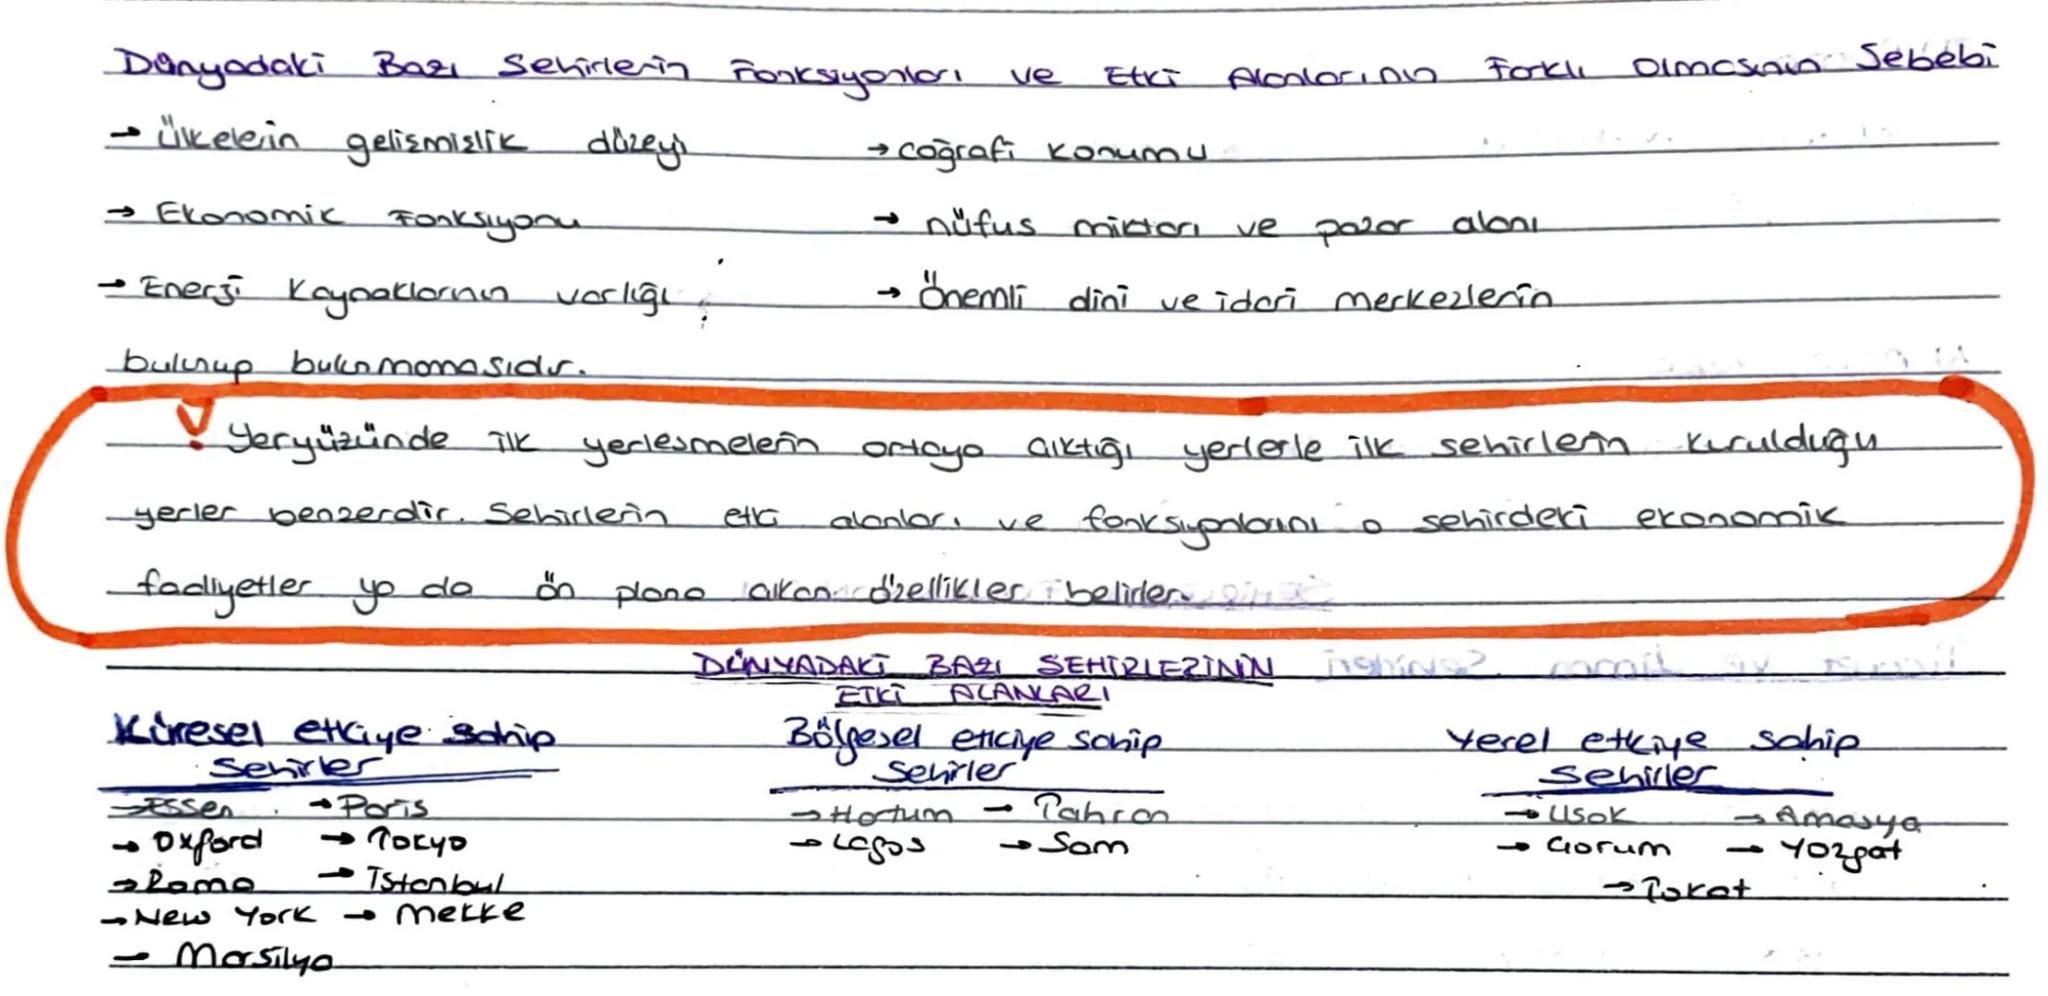 Dünyadaki Bazı Şehirlerin Fonksiyonları ve Etki Alanlarının Farklı Olmasının Sebebi
→ Ülkelerin gelişmişlik düzeyi → coğrafi konumu
→ Ekonomik Fonksiyonu → nüfus miktarı ve pazar alanı
→ Enerji Kaynaklarının varlığı → Önemli dini ve idari merkezlerin
bulunup bulunmamasıdır.
! Yeryüzünde ilk yerleşmelerin ortaya çıktığı yerlerle ilk şehirlerin kurulduğu
yerler benzerdir. Şehirlerin etki alanları ve fonksiyonlarını o şehirdeki ekonomik
faaliyetler ya da ön plana çıkan özellikler belirler.
DÜNYADAKİ BAZI ŞEHİRLERİNİN
ETKİ ALANLARI
Küresel etkiye sahip Bölgesel etkiye sahip Yerel etkiye sahip
Şehirler Şehirler Şehirler
→ Essen → Paris → Hartum → Tahran → Uşak → Amasya
→ Oxford → Tokyo → Lagos → Şam → Çorum → Yozgat
→ Roma → İstanbul → Tokat
→ New York → Mekke
→ Marsilya